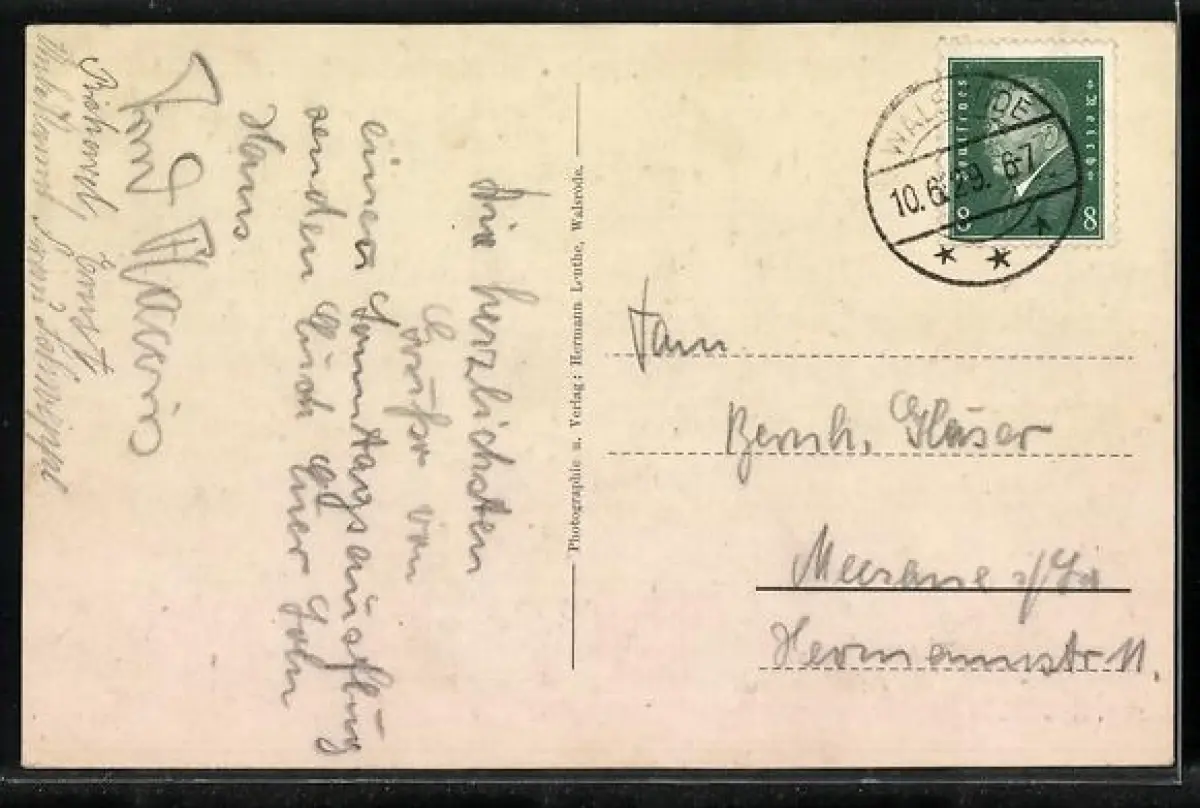 Die herzlichsten
Grüße von
einen Sonntagsausflug
senden Euch Euer Sohn
Hans
Richard, Ernst
Photographie u. Verlag: Hermann Leuthe, Walsrode.
WALSRODE
10.6.29. 6-7
Deutsches Reich
8 8
Fam
Bernh. Gläser
Meerane i/Sa
Hermannstr 11.